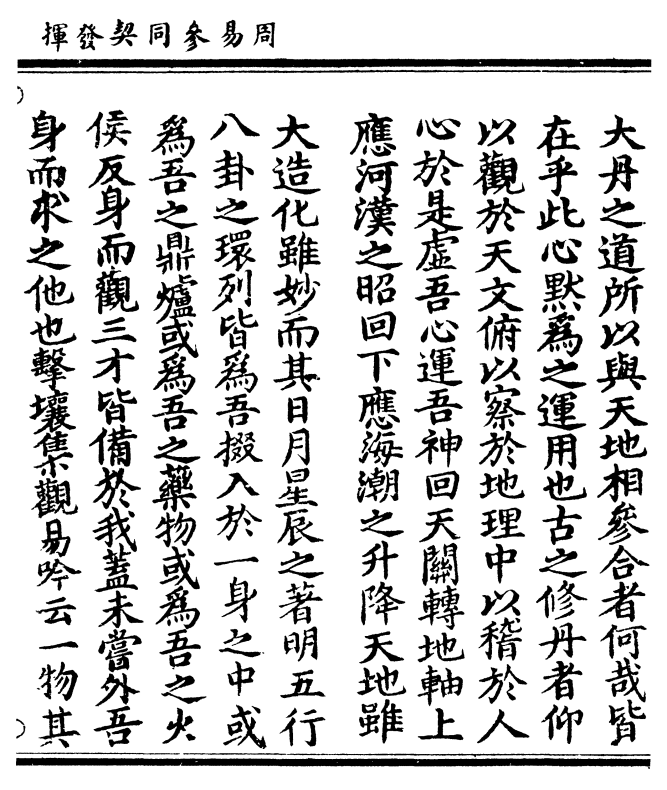 周易參同契發揮
大丹之道所以與天地相參合者何哉皆
在乎此心默爲之運用也古之修丹者仰
以觀於天文俯以察於地理中以稽於人
心於是虛吾心運吾神回天關轉地軸上
應河漢之昭回下應海潮之升降天地雖
大造化雖妙而其日月星辰之著明五行
八卦之環列皆爲吾掇入於一身之中或
爲吾之鼎爐或爲吾之藥物或爲吾之火
候反身而觀三才皆備於我蓋未嘗外吾
身而求之他也擊壤集觀易吟云一物其